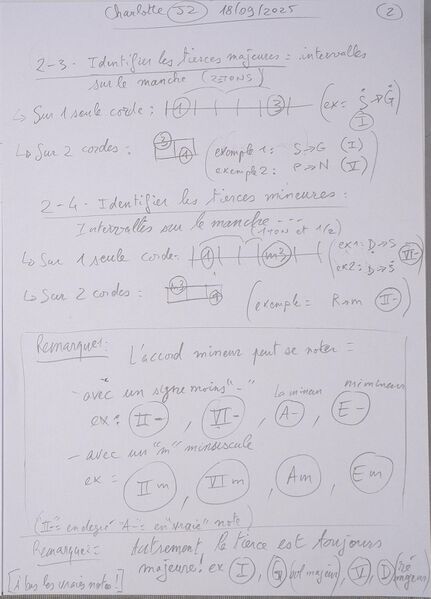 Charlotte S2 18/09/2025 2
2-3. Identifier les tierces majeures = intervalles
sur le manche (2 TONS)
↳ Sur 1 seule corde : 1 3 (ex = S → G
I
↳ Sur 2 cordes : 3 1 (exemple 1 : S → G (I)
exemple 2 : P → N (V)
2-4. Identifier les tierces mineures :
Intervalles sur le manche ---
(1 TON et 1/2)
↳ Sur 1 seule corde : 1 m3 (ex1 : D → S VI-
ex2 : D → S
↳ Sur 2 cordes : m3 1 (exemple = R → m II-)
Remarques : L'accord mineur peut se noter =
- avec un signe moins "-" La mineur mi mineur
ex : II- , VI- , A- , E-
- avec un "m" minuscule
ex = IIm , VIm , Am , Em
("II-" = en degré "A-" = en "vraie" note)
Remarque = Autrement, la tierce est toujours
majeure ! ex I , G (sol majeur) , V , D (ré majeur)
[à bas les vraies notes !]